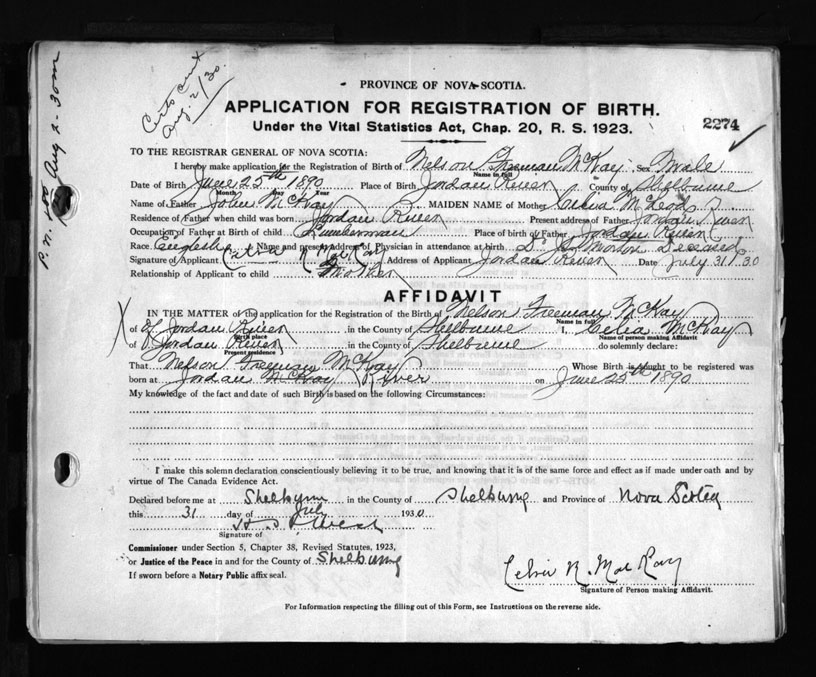 Certs sent
Aug. 2/30.
P.N. 400 Aug 2-30 mm
PROVINCE OF NOVA SCOTIA.
APPLICATION FOR REGISTRATION OF BIRTH.
2274
Under the Vital Statistics Act, Chap. 20, R. S. 1923.
TO THE REGISTRAR GENERAL OF NOVA SCOTIA:
I hereby make application for the Registration of Birth of Nelson Freeman McKay Sex male
Name in full
Date of Birth June 25th 1890 Place of Birth Jordan River County of Shelburne
Month Day Year
Name of Father John McKay MAIDEN NAME of Mother McLeod
Residence of Father when child was born Jordan River Present address of Father Jordan River
Occupation of Father at Birth of Child Lumberman Place of birth of Father Jordan River
Race English Name and present address of Physician in attendance at birth Dr Morton Deceased
Signature of Applicant Celia R MacKay Address of Applicant Jordan River Date July 31/30
Relationship of Applicant to child Mother
AFFIDAVIT
IN THE MATTER of the application for the Registration of the Birth of Nelson Freeman McKay
Name in full
of Jordan River in the County of Shelburne I, Celia McKay
Birth place Name of person making Affidavit
of Jordan River in the County of Shelburne do solemnly declare:
Present residence
That Nelson Freeman McKay Whose Birth is sought to be registered was
born at Jordan McKay River on June 25th 1890
My knowledge of the fact and date of such Birth is based on the following Circumstances:
I make this solemn declaration conscientiously believing it to be true, and knowing that it is of the same force and effect as if made under oath and by
virtue of The Canada Evidence Act.
Declared before me at Shelburne in the County of Shelburne and Province of Nova Scotia
this 31 day of July 1930
West
Signature of
Commissioner under Section 5, Chapter 38, Revised Statutes, 1923,
or Justice of the Peace in and for the County of Shelburne
If sworn before a Notary Public affix seal.
Celia R. MacKay
Signature of Person making Affidavit.
For Information respecting the filling out of this Form, see Instructions on the reverse side.